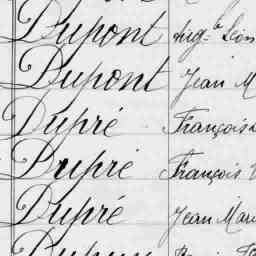 Dupont Aug-te Léon
Dupont Jean M
Dupré François
Dupré François
Dupré Jean Mari